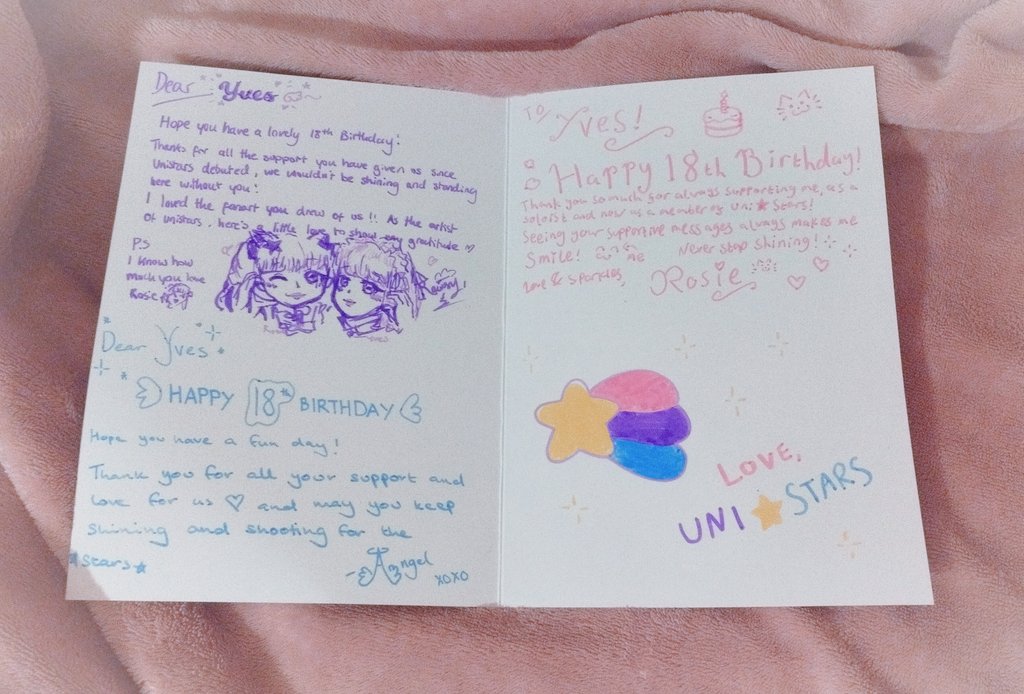 Dear Yves
Hope you have a lovely 18th Birthday!
Thanks for all the support you have given us since
Unistars debuted, we wouldn't be shining and standing
here without you!
I loved the fanart you drew of us!! As the artist
of unistars, here's a little love to show my gratitude ♡
P.S
I know how
much you love
Rosie
Dear Yves
HAPPY 18th BIRTHDAY
Hope you have a fun day!
Thank you for all your support and
love for us ♡ and may you keep
shining and shooting for the
★stars★
Angel
XOXO
TO/ Yves!
Happy 18th Birthday!
Thank you so much for always supporting me, as a
soloist and now as a member of Uni★Stars!
Seeing your supportive messages always makes me
Smile! Never stop shining!
Love & Sparkles, Rosie
LOVE,
UNI★STARS